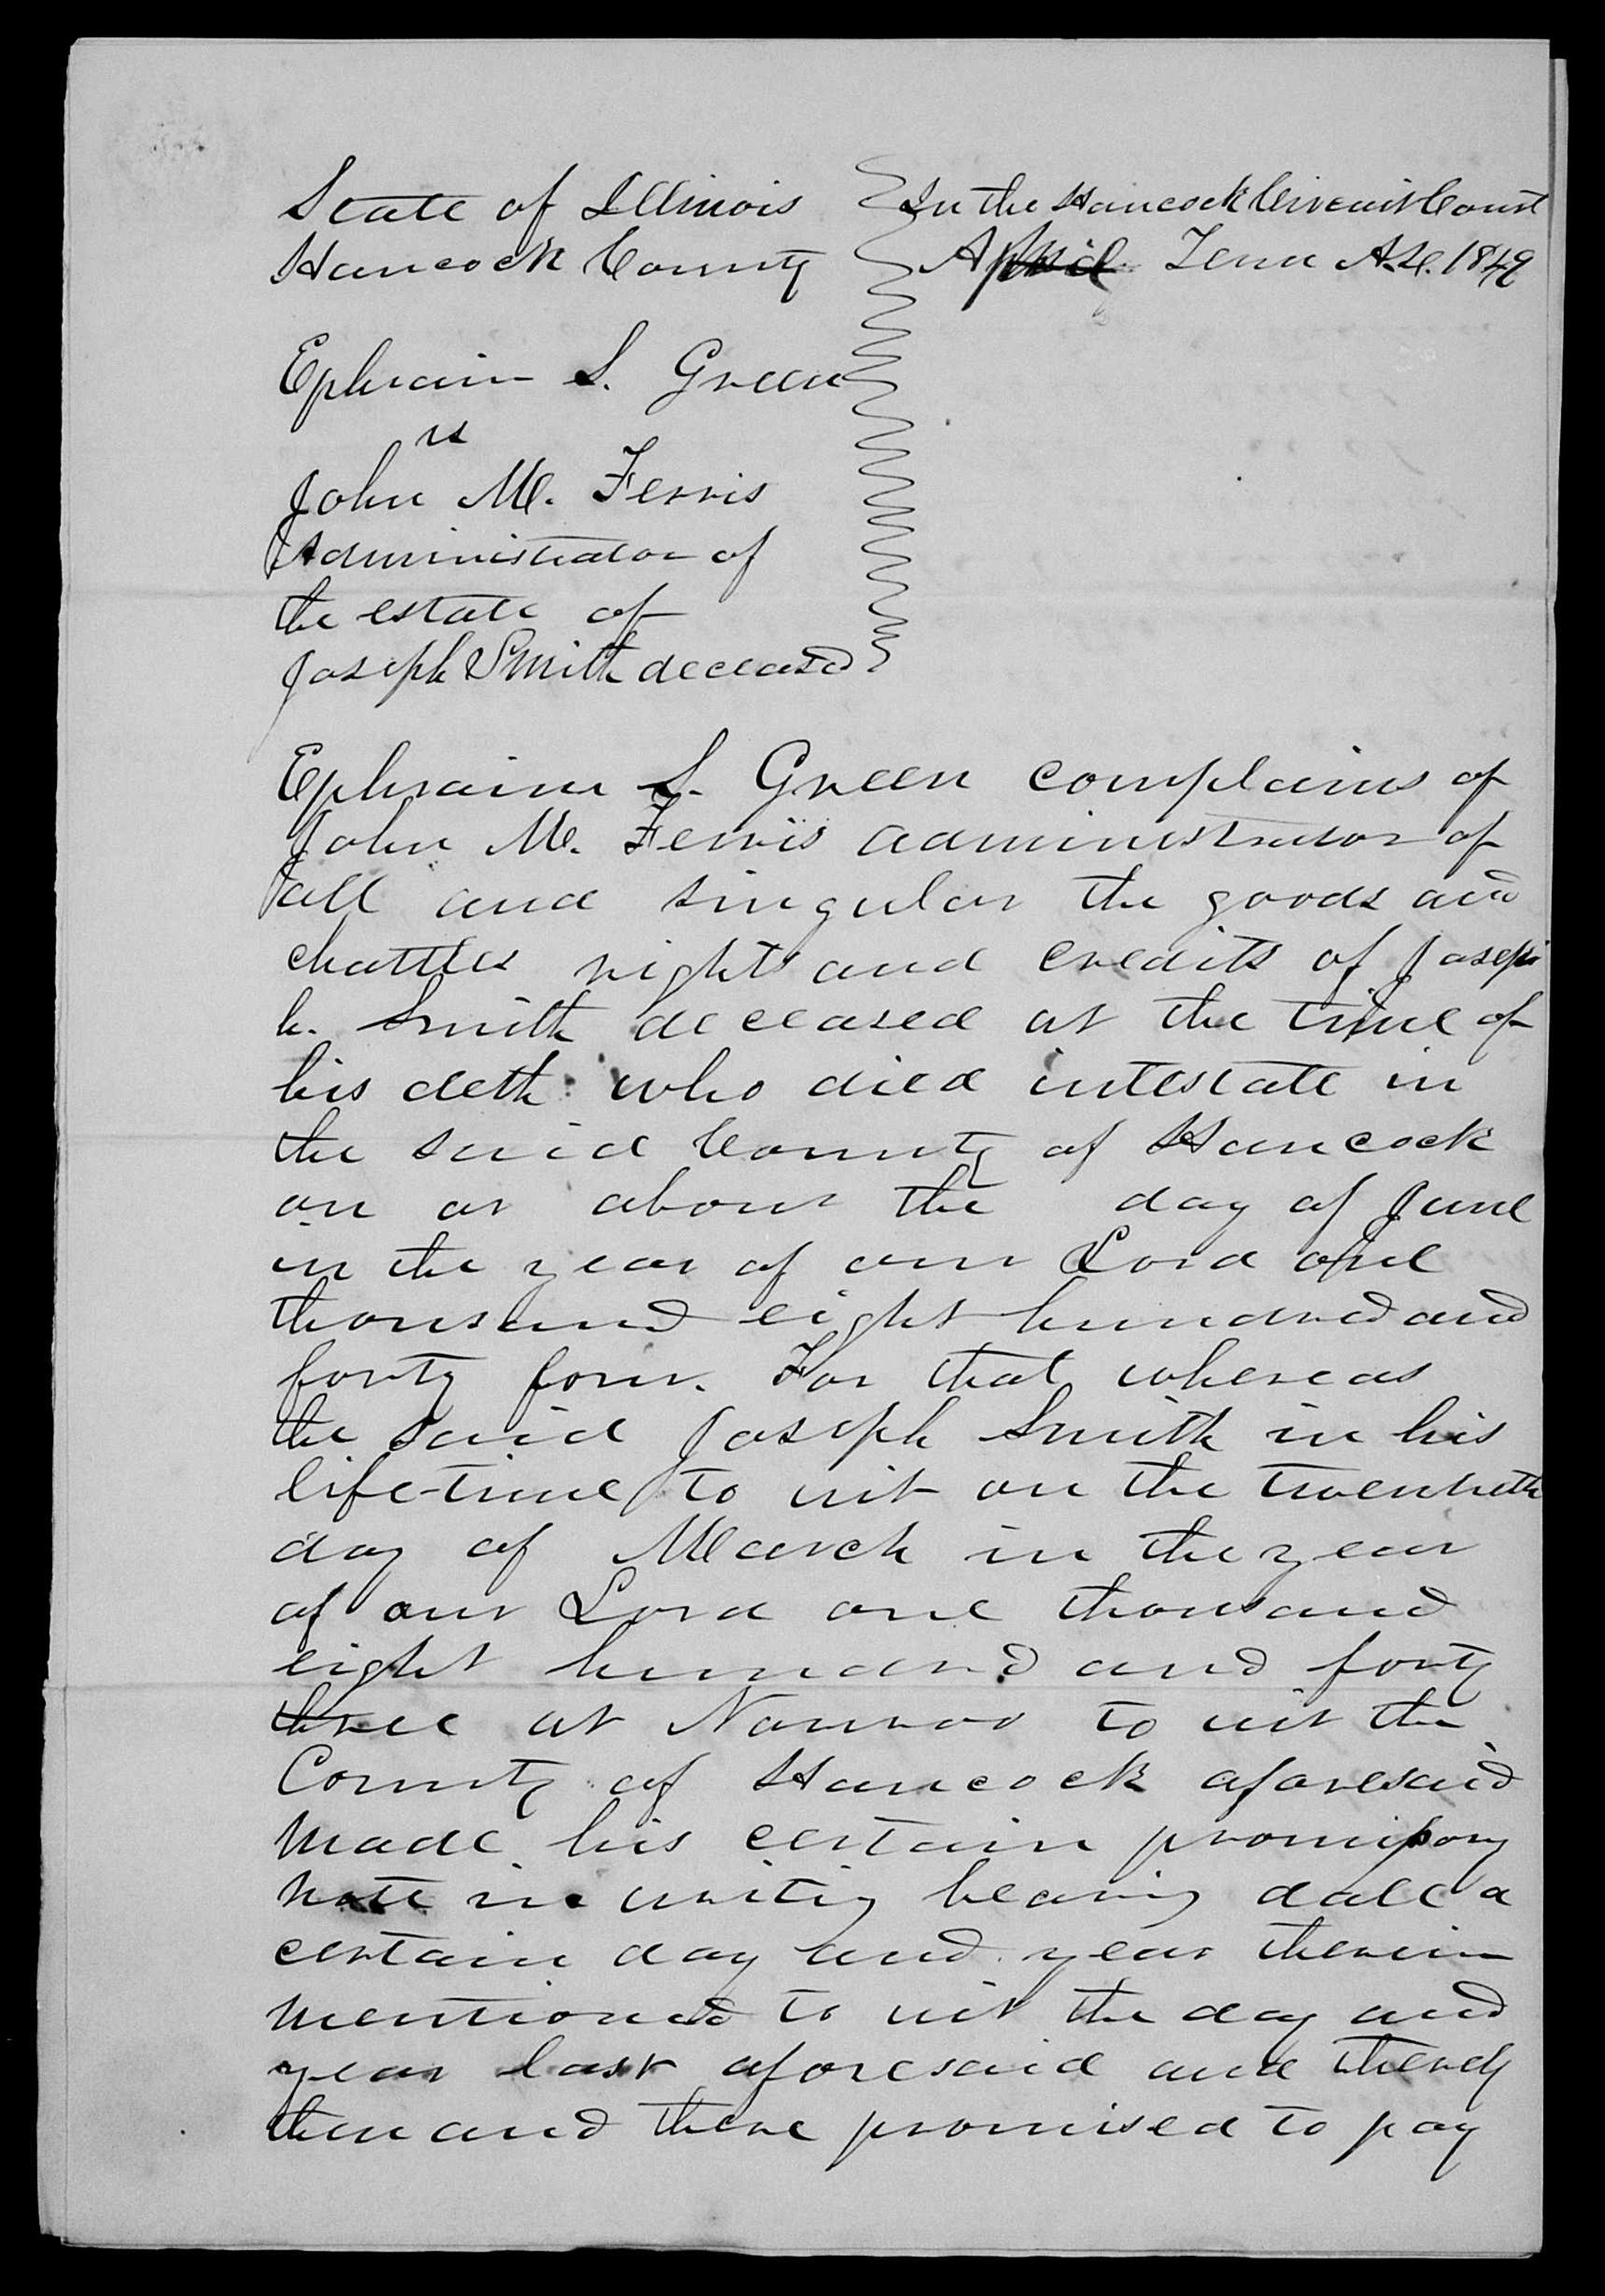 State of Illinois
Hancock County
In the Hancock Circuit Court
April Term A.D. 1849
Ephraim S. Green
vs
John M. Ferris
Administrator of
the estate of
Joseph Smith deceased
Ephraim S. Green complains of
John M. Ferris administrator of
all and singular the goods and
chattles rights and credits of Joseph
Smith deceased at the time of
his deth who died intestate in
the said County of Hancock
on or about the day of June
in the year of our Lord one
thousand eight hundred and
forty four. For that whereas
the said Joseph Smith in his
life-time to wit on the twentieth
day of March in the year
of our Lord one thousand
eight hundred and forty
three at Nauvoo to wit the
County of Hancock aforesaid
made his certain promissory
note in writing bearing date a
certain day and year therein
mentioned to wit the day and
year last aforesaid and thereby
then and there promised to pay